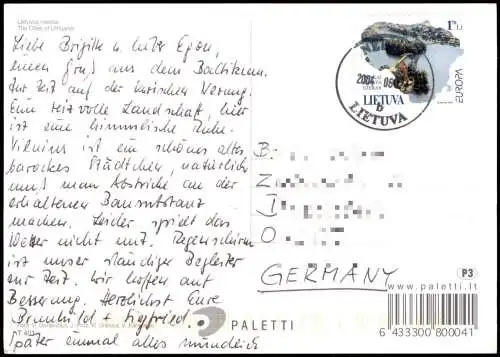 Lietuvos miestai
The Cities of Lithuania
Liebe Brigitte u. lieber Egon,
einen Gruß aus dem Baltikum.
Zur Zeit auf der kurischen Nerung.
Eine reizvolle Landschaft, hier
ist eine himmlische Ruhe.
Vilnius ist ein schönes altes
barockes Städtchen, natürlich
muß man Abstriche an der
erhaltenen Bausubstanz
machen. Leider spielt das
Wetter nicht mit. Regenschirm
ist unser ständiger Begleiter
zur Zeit. Wir hoffen auf
Besserung. Herzlichst Eure
Brunhild + Siegfried.
Später einmal alles mündlich
AT 401
PALETTI
1 Lt
EUROPA
LIETUVA
2004
LIETUVA
B
Z
I
O
GERMANY
P3
www.paletti.lt
6 433300 800041